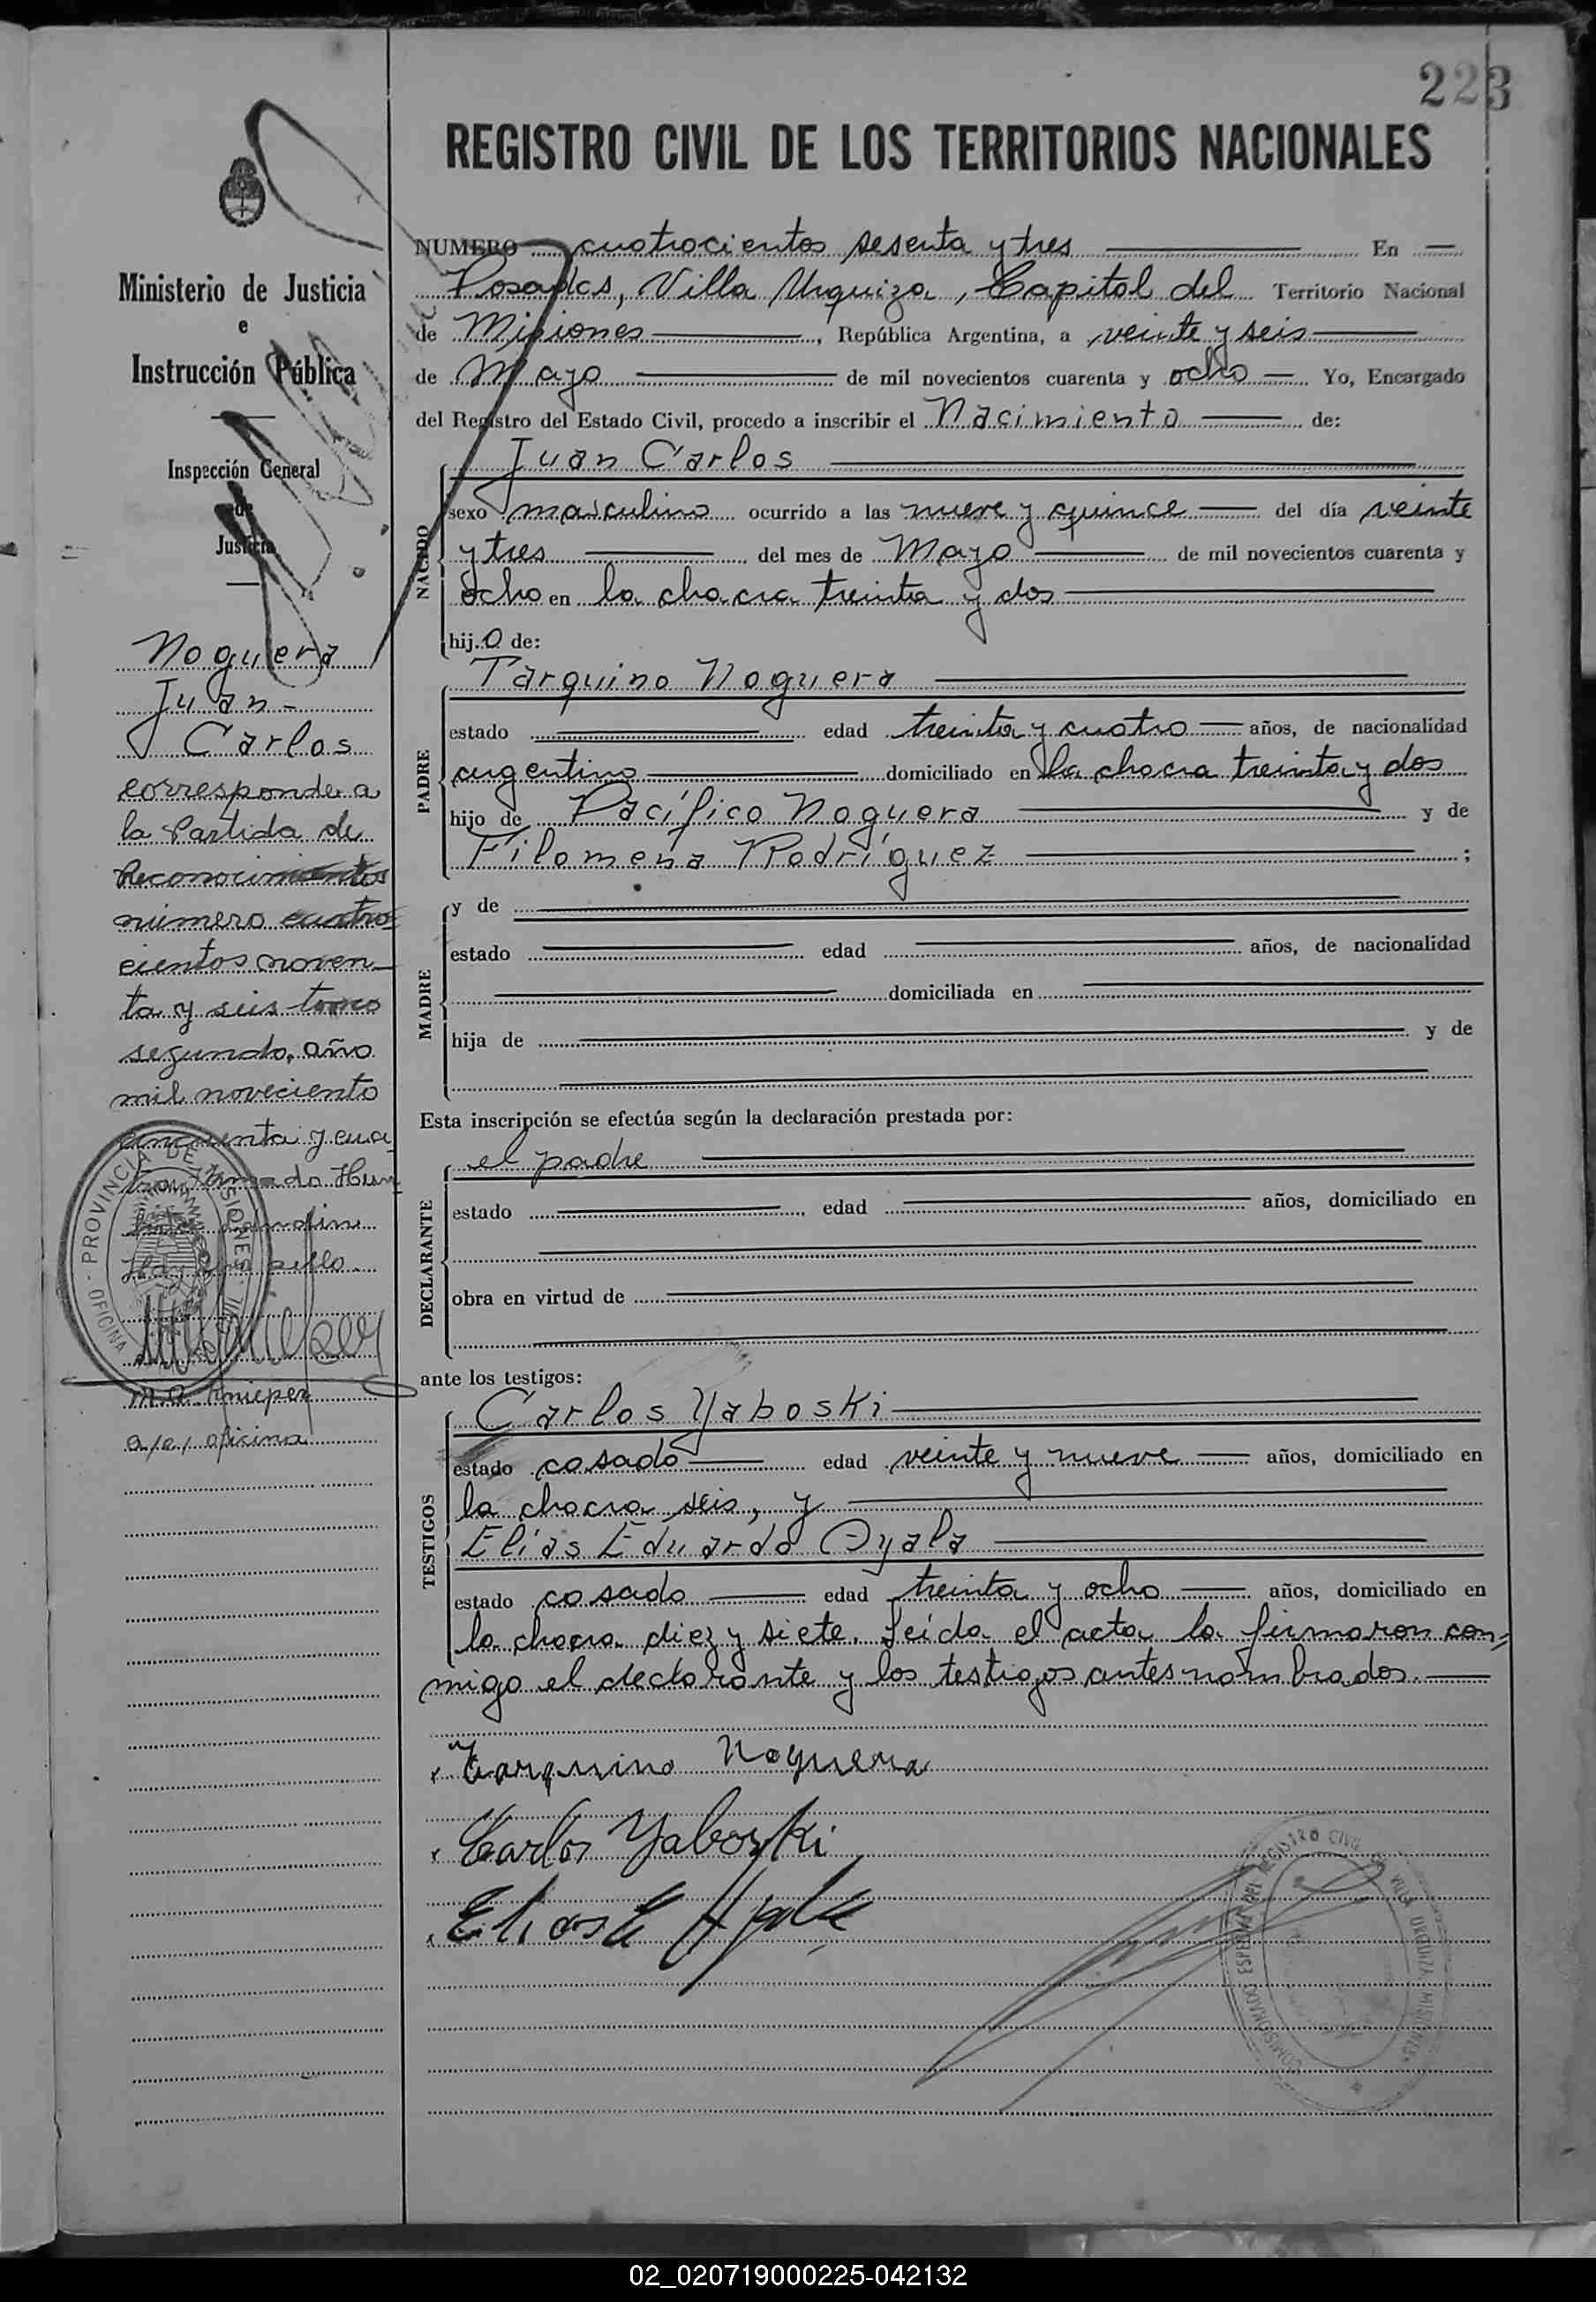 223
REGISTRO CIVIL DE LOS TERRITORIOS NACIONALES
Ministerio de Justicia
e
Instrucción Pública
Inspección General
de
Justicia
Noguera
Juan
Carlos
corresponde a
la Partida de
Reconocimientos
número cuatro
cientos noven-
ta y seis tomo
segundo, año
mil noveciento
cincuenta y cua
Hay un sello.
a/c/ oficina
PROVINCIA DE MISIONES
OFICINA
NUMERO cuatrocientos sesenta y tres En
Posadas, Villa Urquiza, Capital del Territorio Nacional
de Misiones, República Argentina, a veinte y seis
de Mayo de mil novecientos cuarenta y ocho Yo, Encargado
del Registro del Estado Civil, procedo a inscribir el Nacimiento de:
NACIDO
Juan Carlos
sexo masculino ocurrido a las nueve y quince del día veinte
y tres del mes de Mayo de mil novecientos cuarenta y
ocho en la chacra treinta y dos
hijo de:
PADRE
Tarquino Noguera
estado edad treinta y cuatro años, de nacionalidad
argentino domiciliado en la chacra treinta y dos
hijo de Pacífico Noguera y de
Filomena Rodríguez ;
MADRE
y de
estado edad años, de nacionalidad
domiciliada en
hija de y de
Esta inscripción se efectúa según la declaración prestada por:
DECLARANTE
el padre
estado , edad años, domiciliado en
obra en virtud de
ante los testigos:
TESTIGOS
Carlos Yaboski
estado casado edad veinte y nueve años, domiciliado en
la chacra seis, y
Elías Eduardo Ayala
estado casado edad treinta y ocho años, domiciliado en
la chacra diez y siete. Leída el acta la firmaron con-
migo el declarante y los testigos antes nombrados.
Tarquino Noguera
Carlos Yaboski
Elias E Ayala
COMISIONADO ESPECIAL DEL REGISTRO CIVIL DE VILLA URQUIZA MISIONES
02_020719000225-042132